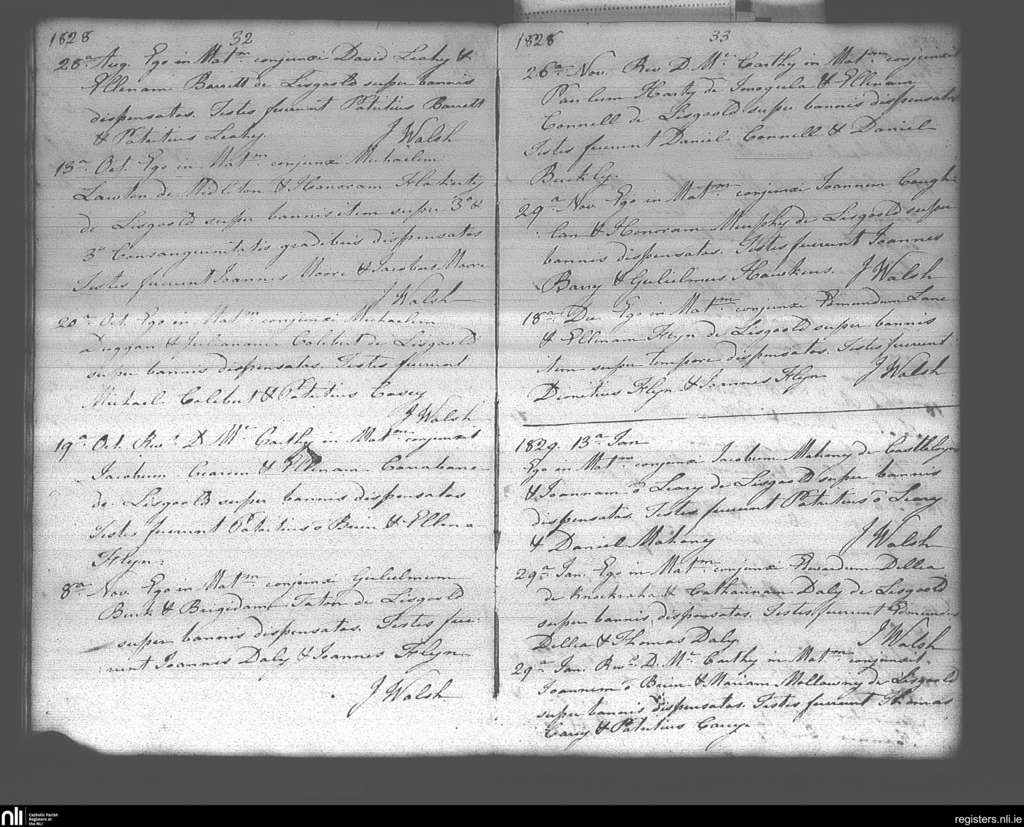 1828 32
28ª Aug. Ego in Matm conjunxi David Leahy &
Ellenam Barrett de Lisgoold super bannis
dispensatos. Testes fuerunt Patritius Barrett
& Patritius Leahy J Walsh
13ª Oct. Ego in Matm conjunxi Michaelem
Lawton de Midleton & Honoram
de Lisgoold super bannis item super 3º &
3º Consanguinitatis gradibus dispensatos
Testes fuerunt Joannes Moore & Jacobus Moore
J Walsh
20ª Oct. Ego in Matm conjunxi Michaelem
Duggan & Julianam Colibert de Lisgoold
super bannis dispensatos. Testes fuerunt
Michael Colebert & Patritius Casey
J Walsh
19ª Oct. Revd D Mc Carthy in Matm conjunxit
Jacobum & Ellenam
de Lisgoold super bannis dispensatos
Testes fuerunt Patritius o Brien & Ellena
Flyn
8ª Nov. Ego in Matm conjunxi Gulielmum
Burk & Brigidam de Lisgoold
super bannis dispensatos. Testes fue-
runt Joannes Daly & Joannes Flyn
J Walsh
1828 33
26ª Nov. Rev D Mc Carthy in Matm conjunxit
Paulum Harty de Imogeela & Ellenam
Connell de Lisgoold super bannis dispensatos
Testes fuerunt Daniel Connell & Daniel
Buckly.
29ª Nov. Ego in Matm conjunxi Joannem Cough-
lan & Honoram Murphy de Lisgoold super
bannis dispensatos. Testes fuerunt Joannes
Barry & Gulielmus Hawkens. J Walsh
18ª Dec Ego in Matm conjunxi Edmundum Lane
& Ellenam Flyn de Lisgoold super bannis
item super tempore dispensatos. Testes fuerunt
Dionitius Flyn & Joannes Flyn J Walsh
1829. 13ª Jan
Ego in Matm conjunxi Jacobum Mahony de
& Joannam o Leary de Lisgoold super bannis
dispensatos. Testes fuerunt Patritius o Leary
& Daniel Mahony J Walsh
29ª Jan. Ego in Matm conjunxi Edwardum Dellea
de Knockraha & Catharinam Daly de Lisgoold
super bannis dispensatos. Testes fuerunt Edmundus
Dellea & Thomas Daly J Walsh
29ª Jan. Revd D. Mc Carthy in Matm conjunxit
Joannem o Brien & Mariam Mollowny de Lisgoold
super bannis dispensatos. Testes fuerunt Thomas
Casey & Patritius Casey
nli Catholic Parish
Registers at
the NLI
registers.nli.ie